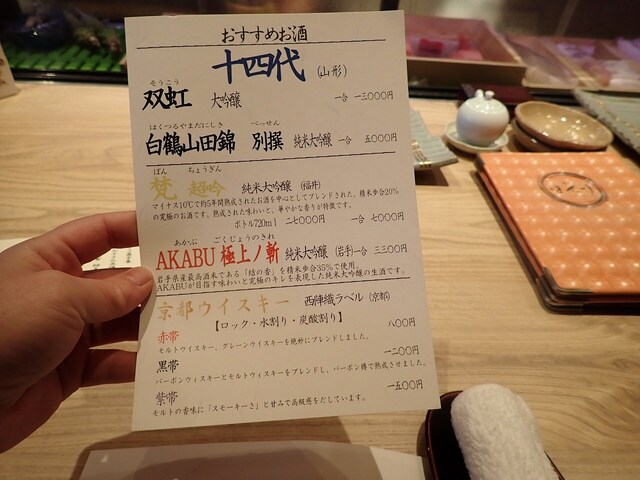 おすすめお酒
十四代 (山形)
そうこう
双虹 大吟醸 一合 一三〇〇〇円
はくつるやまだにしき べっせん
白鶴山田錦 別撰 純米大吟醸 一合 五〇〇〇円
ぼん ちょうぎん
梵 超吟 純米大吟醸 (福井)
マイナス10℃で約5年間熟成されたお酒を中心としてブレンドされた、精米歩合20%
の究極のお酒です。熟成された味わいと、華やかな香りが特徴です。
ボトル720ml 二七〇〇〇円 一合 七〇〇〇円
あかぶ ごくじょうのきれ
AKABU 極上ノ斬 純米大吟醸 (岩手)一合 三三〇〇円
岩手県産最高酒米である「結の香」を精米歩合35%で使用。
AKABUが目指す味わいと究極のキレを表現した純米大吟醸の生酒です。
京都ウイスキー 西陣織ラベル (京都)
【ロック・水割り・炭酸割り】
赤帯 八〇〇円
モルトウイスキー、グレーンウイスキーを絶妙にブレンドしました。
黒帯 一二〇〇円
バーボンウィスキーとモルトウィスキーをブレンドし、バーボン樽で熟成させました。
紫帯 一五〇〇円
モルトの香味に「スモーキーさ」と甘みで高級感をだしています。